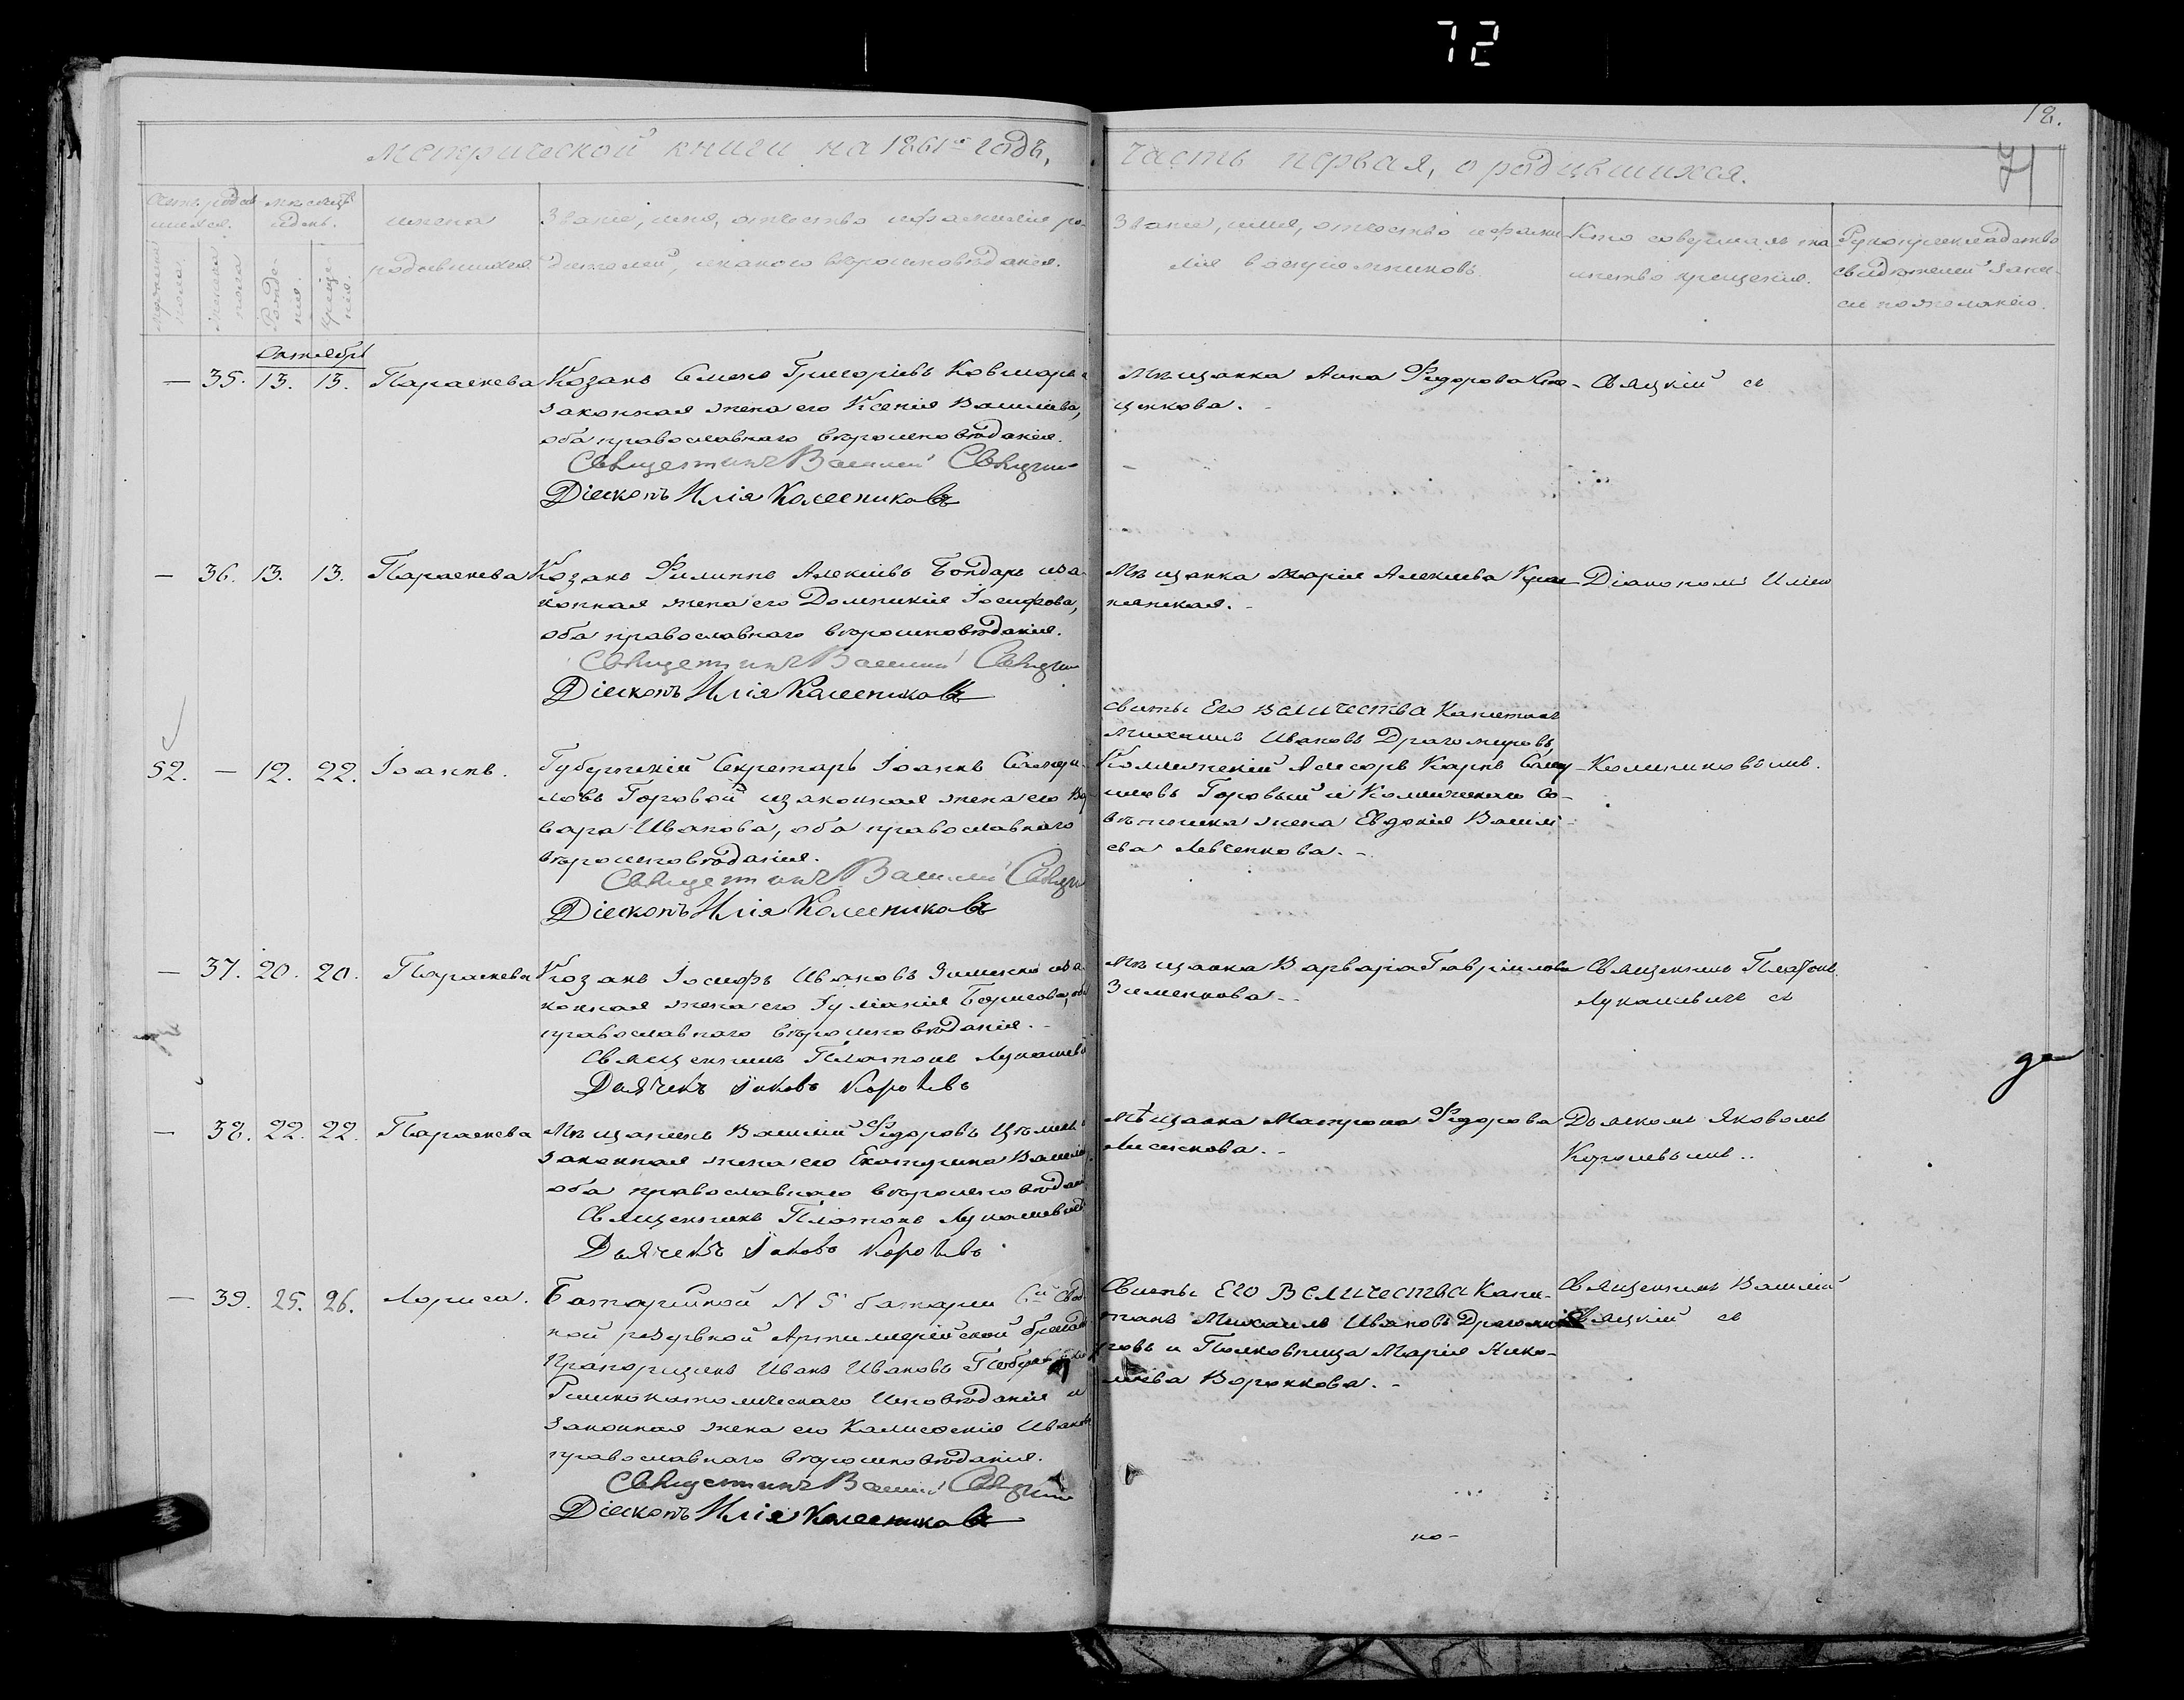 72
18.
71
метрической книги на 1861й годъ,
часть первая, о родившихся.
Счетъ родив
шихся.
мужеска
пола.
женска
пола
месяцъ
и день.
Рожде-
нія.
Креще-
нія.
имена
родившихся.
Званіе, имя, отчество и фамилія ро-
дителей, и какого вѣроисповѣданія.
Званіе, имя, отчество и фами-
лія воспріемниковъ.
Кто совершалъ таи-
инство крещенія.
Рукоприкладство
свидѣтелей запи-
си по желанію.
Октября
— 35. 13. 13. Параскева
Козакъ Семенъ Григоріевъ
законная жена его Ксенія Василіева,
оба православнаго вѣроисповѣданія.
Священникъ Василій Свяцкій
Діаконъ Илія Колесниковъ
Мѣщанка Анна Федорова
ценкова.
Свяцкій съ
— 36. 13. 13. Параскева
Козакъ Филиппъ Алексіевъ Бондарь и за-
конная жена его Домникія Іосифова,
оба православнаго вѣроисповѣданія.
Священникъ Василій Свяцкій
Діаконъ Илія Колесниковъ
Мѣщанка Марія Алексіева
нянская.
Діакономъ Иліею
52. — 12. 22. Іоаннъ.
Губернскій Секретарь Іоаннъ Самуи-
ловъ Горовой и законная жена его Вар
вара Иванова, оба православнаго
вѣроисповѣданія.
Священникъ Василій Свяцкій
Діаконъ Илія Колесниковъ
Свиты Его Величества Капитанъ
Михаилъ Ивановъ Драгомировъ,
Коллежскій Асесоръ Карпъ Саму
иловъ Горовый и Коллежскаго Со-
вѣтника жена Евдокія Василі-
ева Левченкова.
Колесниковымъ.
— 37. 20. 20. Параскева
Козакъ Іосифъ Ивановъ Зименко и за-
конная жена его Іуліанія Борисова, оба
православнаго вѣроисповѣданія.
Священникъ Платонъ Лукашевичъ
Дьячекъ Іаковъ Королевъ
Мѣщанка Варвара Гавріилова
Зименкова.
Священникъ Платонъ
Лукашевичъ съ
— 38. 22. 22. Параскева
Мѣщанинъ Василій Федоровъ
законная жена его Екатерина Василіева
оба православнаго вѣроисповѣданія
Священникъ Платонъ Лукашевичъ
Дьячекъ Іаковъ Королевъ
Мѣщанка Матрона Федорова
Лисенкова.
Дьячкомъ Яковомъ
Королевымъ.
— 39. 25. 26. Лариса.
Батарейной N 5 батареи 6й свод
ной резервной Артиллерійской бригады
Прапорщикъ Иванъ Ивановъ
Римскокатолическаго Исповѣданія и
законная жена его Калисфенія Иванова
православнаго вѣроисповѣданія.
Священникъ Василій Свяцкій
Діаконъ Илія Колесниковъ
Свиты Его Величества Капи-
танъ Михаилъ Ивановъ Драгоми
ровъ и Полковница Марія Нико-
лаева Воронкова.
Священникъ Василій
Свяцкій съ
да
но-